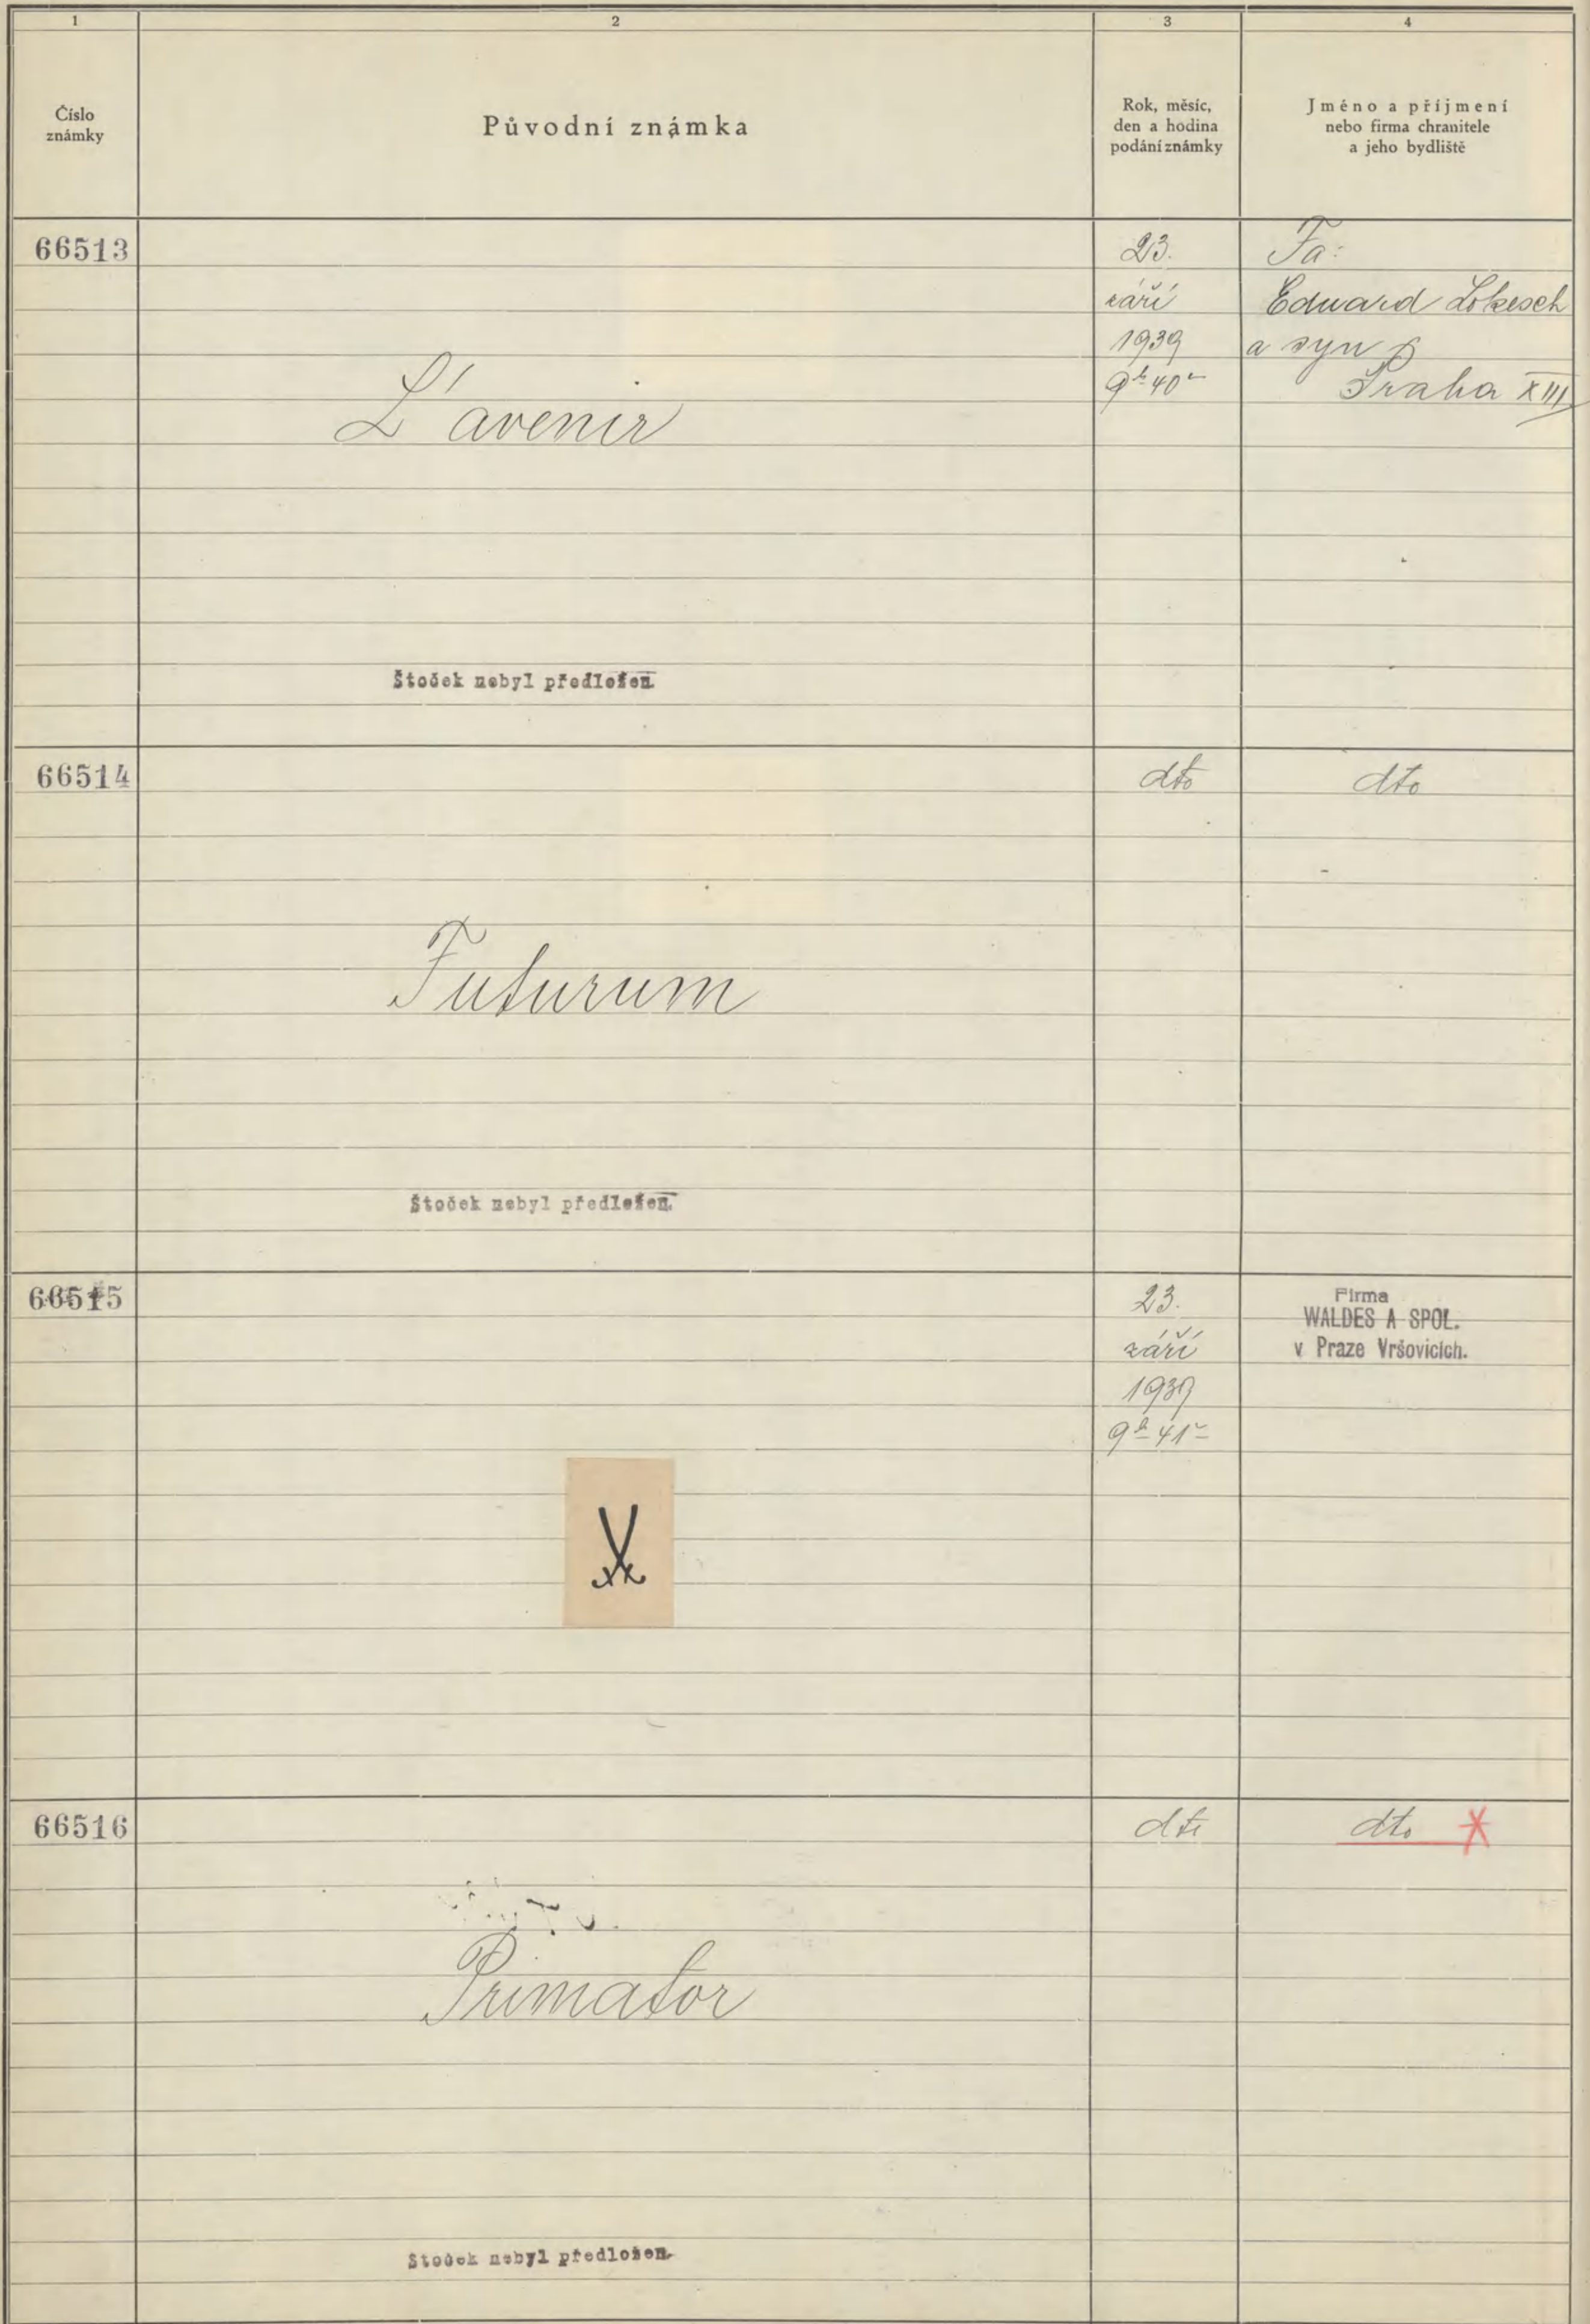 1
2
3
4
Číslo
známky
Původní známka
Rok, měsíc,
den a hodina
podání známky
Jméno a příjmení
nebo firma chranitele
a jeho bydliště
66513
L'avenir
Štoček nebyl předložen
23.
září
1939
9h 40m
Fa:
Edward Lokesch
a syn
Praha XIII
66514
Futurum
Štoček nebyl předložen.
dto
dto
66515
23.
září
1939
9h 41m
Firma
WALDES A SPOL.
v Praze Vršovicích.
66516
Primator
Štoček nebyl předložen.
dto
dto